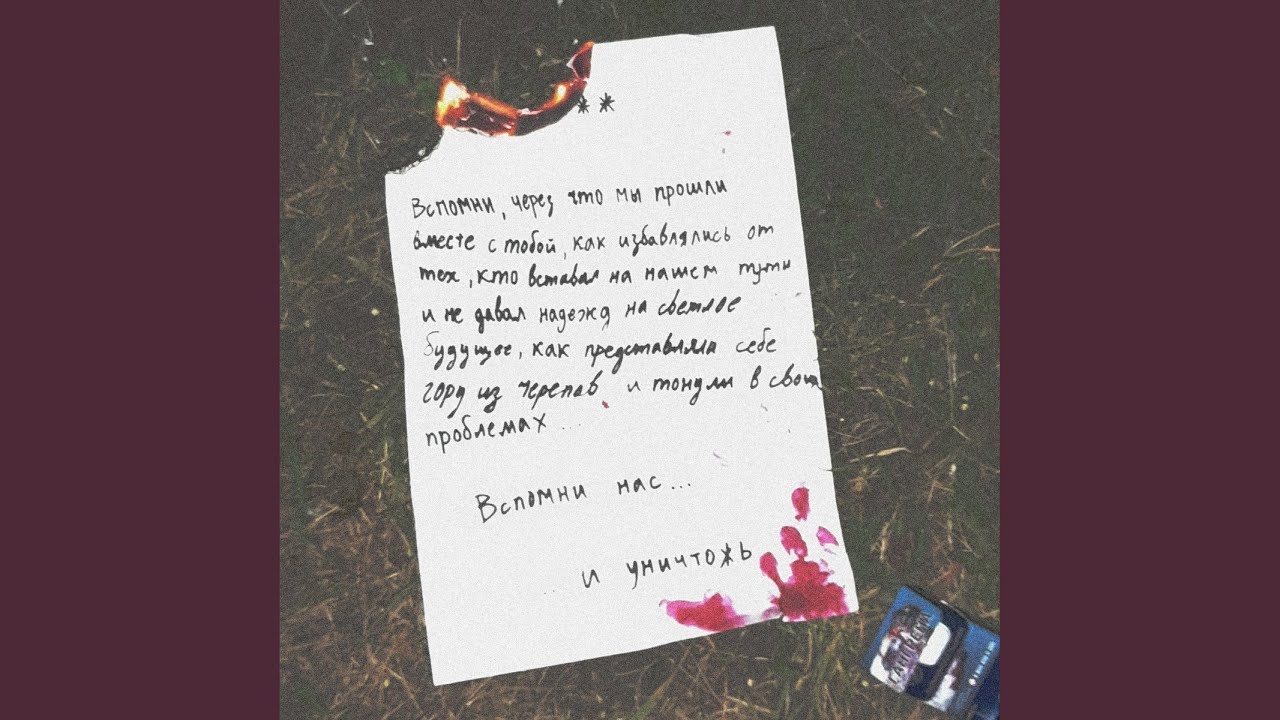 **
Вспомни, через что мы прошли
вместе с тобой, как избавлялись от
тех, кто вставал на нашем пути
и не давал надежд на светлое
будущее, как представляли себе
горд из черепав и тонули в своих
проблемах...
Вспомни нас...
и уничтожь